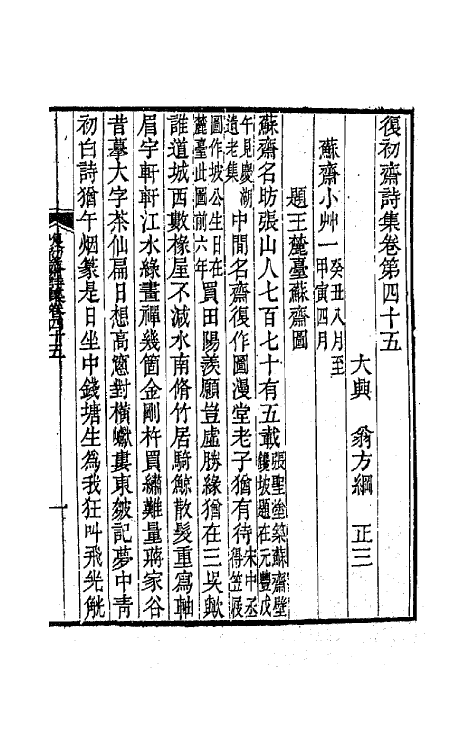 復初齋詩集卷第四十五
大興　翁方綱　正三
蘇齋小艸一癸丑八月至甲寅四月
題王麓臺蘇齋圖
蘇齋名昉張山人七百七十有五載張聖塗築蘇齋壁錢坡題在元豐戊
午見慶湖遺老集中間名齋復作圖漫堂老子猶有待宋中丞得笠屐
圖作坡公生日在麓臺此圖前六年買田陽羨願豈虛勝緣猶在三吳歟
誰道城西數椽屋不減水南脩竹居騎鯨散髮重寫軸
眉宇軒軒江水綠畫禪幾箇金剛杵買繡難量蔣家谷
昔摹大字茶仙扁日想高窻對橫巘婁東皴記夢中靑
初白詩猶午烟篆是日坐中錢塘生爲我狂叫飛光觥
復初齋詩集卷四十五
一